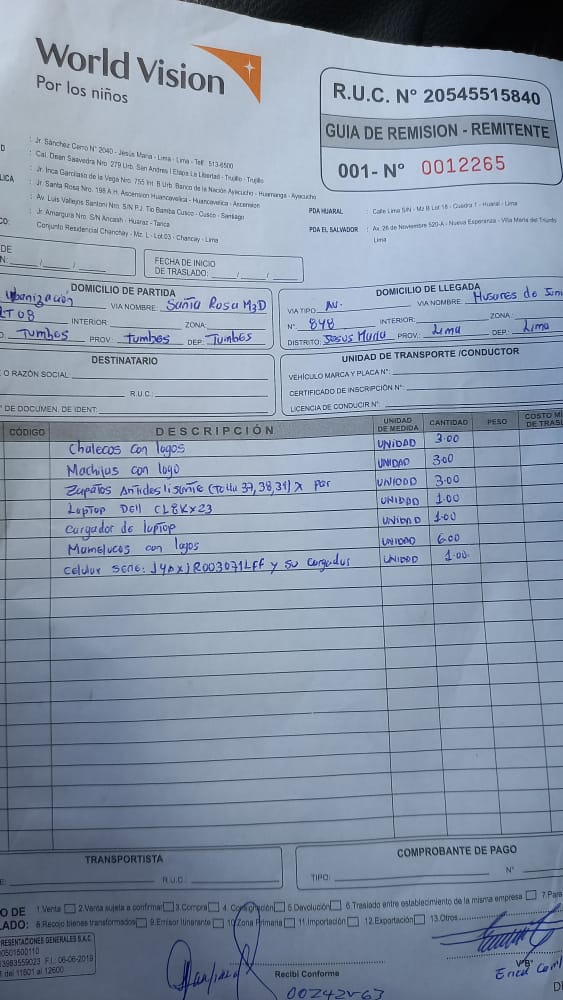 World Vision
Por los niños
R.U.C. N° 20545515840
GUIA DE REMISION - REMITENTE
001- N° 0012265
: Jr. Sánchez Cerro N° 2040 - Jesús María - Lima - Lima - Telf. 513-6500
: Cal. Dean Saavedra Nro. 279 Urb. San Andres I Etapa La Libertad - Trujillo - Trujillo
: Jr. Inca Garcilaso de la Vega Nro. 755 Int. B Urb. Banco de la Nación Ayacucho - Huamanga - Ayacucho
: Jr. Santa Rosa Nro. 198 A.H. Ascension Huancavelica - Huancavelica - Ascension
: Av. Luis Vallejos Santoni Nro. S/N P.J. Tio Bamba Cusco - Cusco - Santiago
: Jr. Amargura Nro. S/N Ancash - Huaraz - Tarica
Conjunto Residencial Chanchay - Mz. L - Lot.03 - Chancay - Lima
PDA HUARAL : Calle Lima S/N - Mz B Lot 16 - Cuadra 1 - Huaral - Lima
PDA EL SALVADOR : Av. 26 de Noviembre 520-A - Nueva Esperanza - Villa María del Triunfo
Lima
FECHA DE INICIO
DE TRASLADO:
DOMICILIO DE PARTIDA
Urbanización VIA NOMBRE: Santa Rosa MzD
LT08 INTERIOR: ZONA:
Tumbes PROV: Tumbes DEP: Tumbes
DOMICILIO DE LLEGADA
VIA TIPO: AV. VIA NOMBRE: Husares de Juni
N°: 848 INTERIOR: ZONA:
DISTRITO: Jesus Maria PROV: Lima DEP: Lima
DESTINATARIO
O RAZÓN SOCIAL:
R.U.C.:
° DE DOCUMEN. DE IDENT:
UNIDAD DE TRANSPORTE /CONDUCTOR
VEHÍCULO MARCA Y PLACA N°:
CERTIFICADO DE INSCRIPCIÓN N°:
LICENCIA DE CONDUCIR N°:
CÓDIGO DESCRIPCIÓN UNIDAD DE MEDIDA CANTIDAD PESO COSTO MI DE TRAS
Chalecos con logos UNIDAD 3.00
Mochilas con logo UNIDAD 3.00
Zapatos Antideslisante (Talla 37,38,39) x par UNIDAD 3.00
Laptop Dell CL8Kx23 UNIDAD 1.00
Cargador de laptop UNIDAD 1.00
Mamelucos con logos UNIDAD 6.00
Celular serie: y su cargador UNIDAD 1.00
TRANSPORTISTA
R.U.C.:
COMPROBANTE DE PAGO
TIPO: N°
O DE 1.Venta 2.Venta sujeta a confirmar 3.Compra 4. Consignación 5.Devolución 6.Traslado entre establecimiento de la misma empresa 7.Para
LADO: 8.Recojo bienes transformados 9.Emisor Itinerante 10.Zona Primaria 11. Importación 12. Exportación 13.Otros
PRESENTACIONES GENERALES S.A.C
F.I.: 06-06-2019
del 11601 al 12600
Recibí Conforme
V°B°
Erica